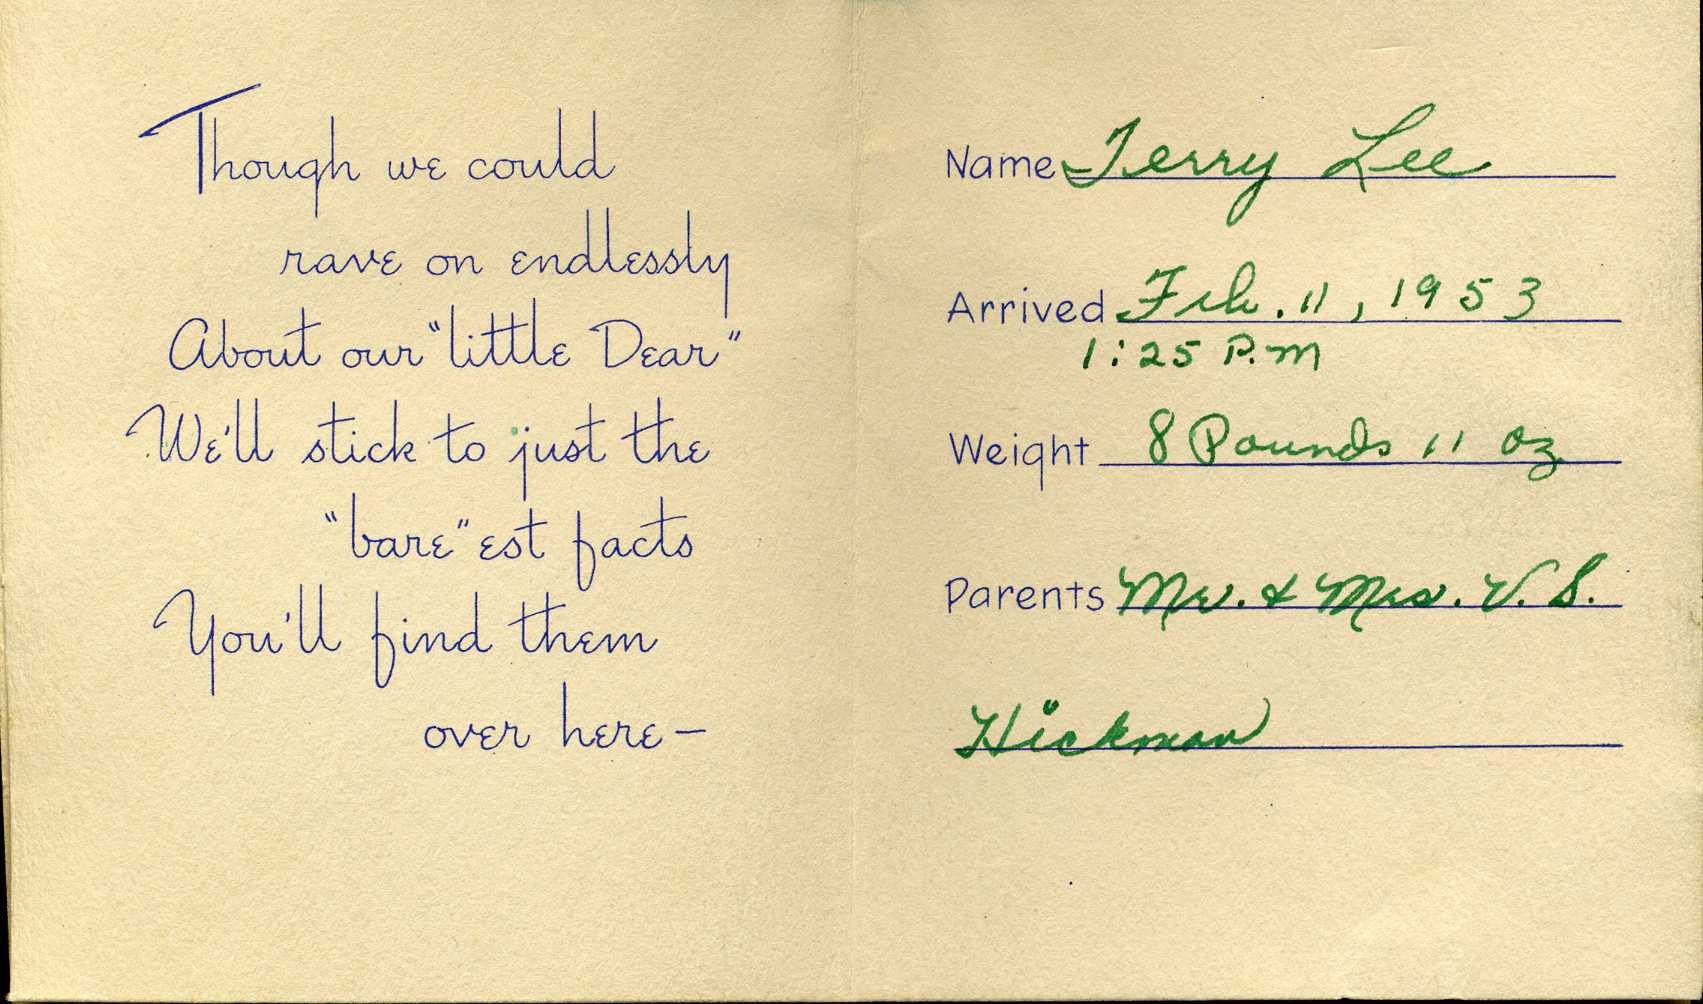 Though we could
rave on endlessly
About our "little Dear"
We'll stick to just the
"bare"est facts
You'll find them
over here—
Name Terry Lee
Arrived Feb. 11, 1953
1:25 P.M
Weight 8 Pounds 11 oz
Parents Mr. & Mrs. V. S.
Hickman